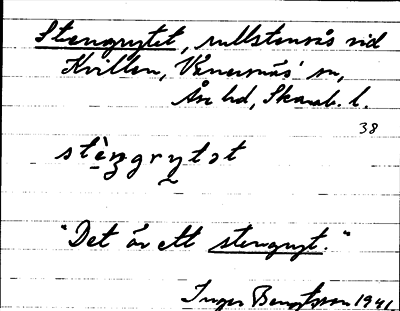 Stengrytet, rullstensås vid
Kvillen, Vänersnäs sn,
Åse hd, Skarab. l.
38
stèŋgrytət
"Det är ett stengryt."
Inger Bengtsson 1941.